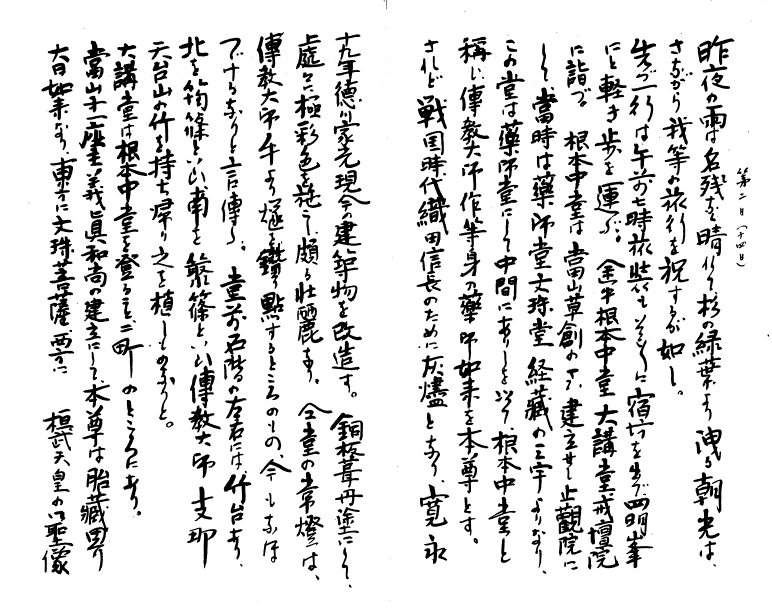 第二日(十四日)
昨夜の雨は名残なく晴れて杉の緑葉より洩る朝光は、
さながら我等の旅行を祝するが如し。
先づ一行は午前七時旅装もそこそこに宿坊を出で四明峯
にと軽き歩を運ぶ。 根本中堂 大講堂 戒壇院
に詣づ 根本中堂は當山草創のさい建立せし止觀院に
して當時は藥師堂文珠堂 経藏の三宇よりなり、
この堂は藥師堂にして中間にありしを以て根本中堂と
稱し傳教大師作等身の藥師如来を本尊とす。
されど戦国時代織田信長のために灰燼となり、寛永
十九年徳川家光現今の建築物を改造す。 銅板葺丹塗にして、
處々に極彩色を施し頗る壮麗なり。 仝堂の常燈は、
傳教大師手より燧を鑽り點ずるところのもの、今もなほ
でけるなりと言ひ傳ふ。 堂前石階の左右には竹台あり、
北を筠篠といひ南を といひ傳教大師支那
天台山の竹を持ち帰り之を植しものなりと。
大講堂は根本中堂を登ること二町のところにあり。
當山第一座主義眞和尚の建立にして本尊は胎藏界の
大日如来なり、東方に文珠菩薩西方に 桓武天皇の御聖像